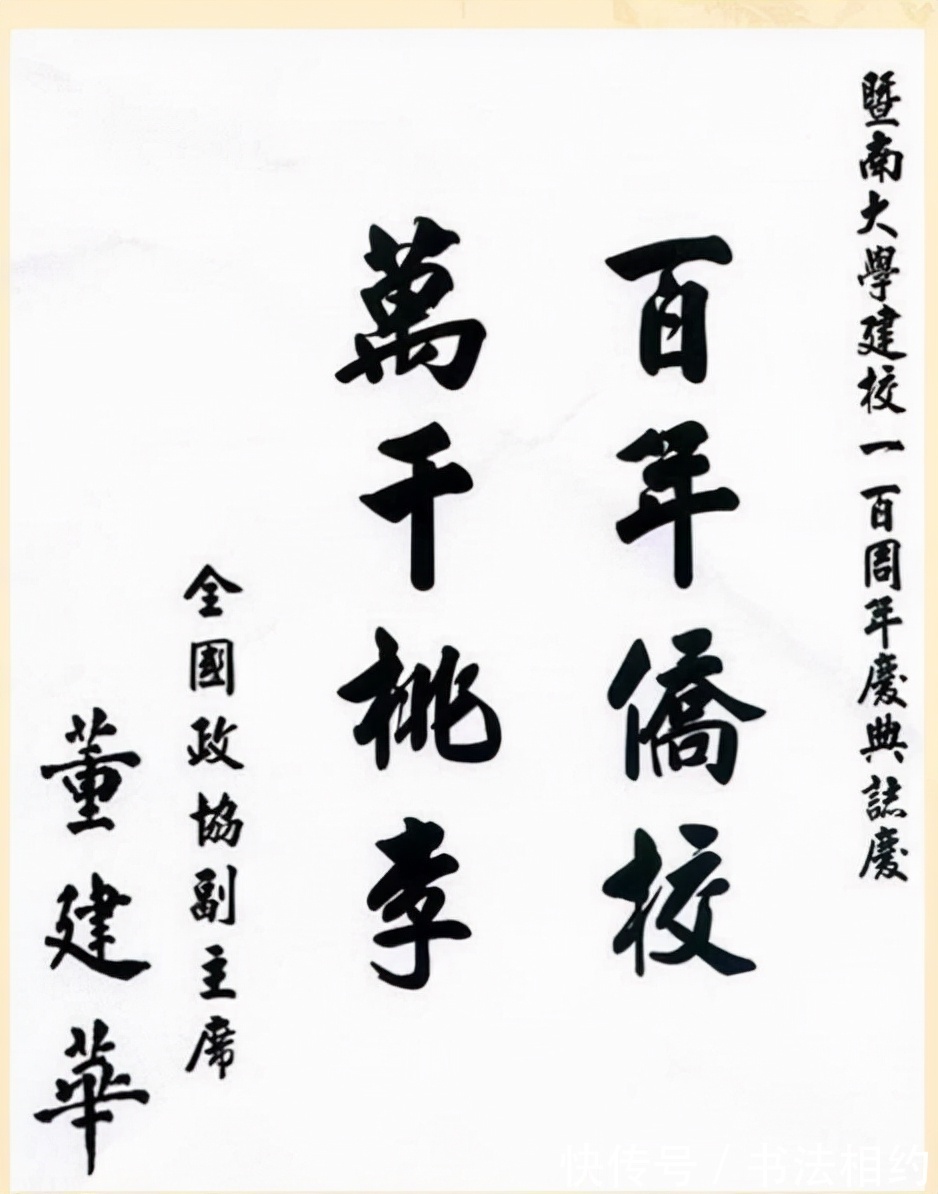 暨南大學建校一百周年慶典誌慶
百年僑校
萬千桃李
全國政協副主席
董建華
快传号 / 书法相约